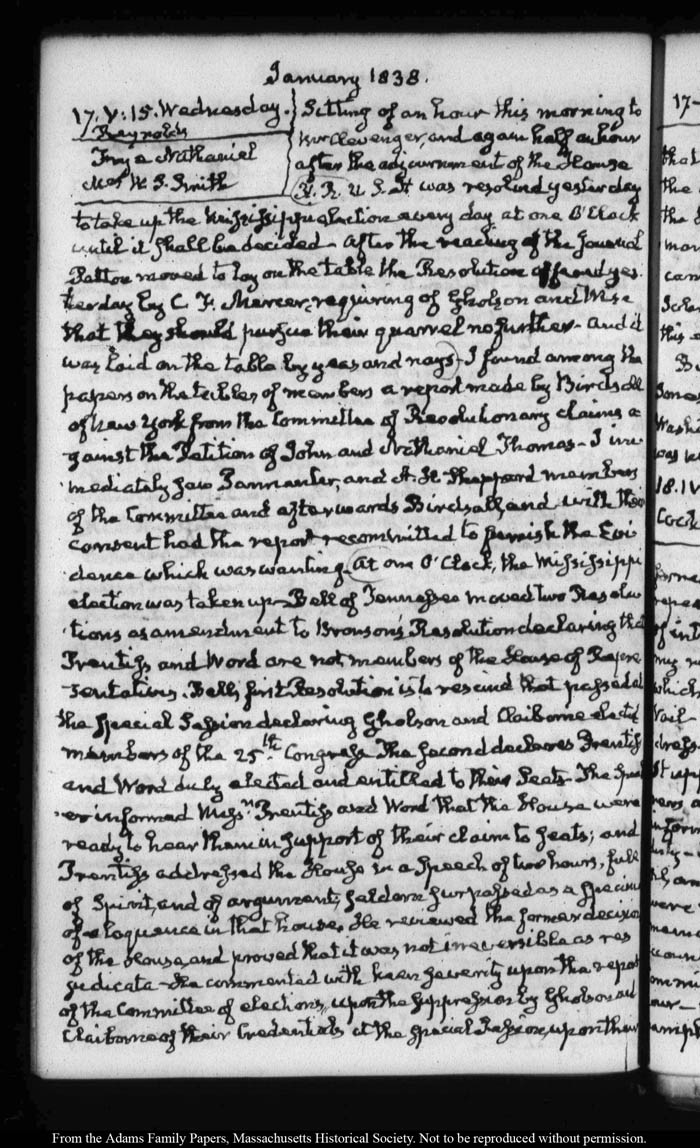 January 1838.
17. V:15. Wednesday. Sitting of an hour this morning to
Reynolds
Mr Clevenger, and again half an hour
Frye Nathaniel
after the adjournment of the House
Mrs W. S. Smith
H. R. U S. It was resolved yesterday
to take up the Mississippi election every day at one O'Clock
until it shall be decided. After the reading of the Journal
Patton moved to lay on the table the Resolution offered yes
terday by C. F. Mercer, requiring of Gholson and Wise
that they should pursue their quarrel no further. And it
was laid on the table by yeas and nays. I found among the
papers on the tables of members a report made by Birdsall
of New York from the Committee of Revolutionary claims a
gainst the Petition of John and Nathaniel Thomas. I im
mediately saw Parmenter, and A. H. Shepperd members
of the Committee and afterwards Birdsall, and with their
consent had the report recommitted to furnish the Evi
dence which was wanting. At one O'Clock, the Mississippi
election was taken up. Bell of Tennessee moved two Resolu
tions as amendment to Bronson's Resolution declaring that
Prentiss and Word are not members of the House of Repre
sentatives. Bell's first Resolution is to rescind that passed at
the Special Session declaring Gholson and Claiborne elected
members of the 25th Congress. The second declares Prentiss
and Word duly elected and entitled to their Seats. The Spea
ker informed Messrs Prentiss and Word that the House were
ready to hear them in support of their claim to seats; and
Prentiss addressed the House in a Speech of two hours, full
of Spirit, and of argument, seldom surpassed as a specimen
of eloquence in that house. He reviewed the former decision
of the House, and proved that it was not irreversible as res
judicata. He commented with keen severity upon the report
of the Committee of elections, upon the suppression by Gholson and
Claiborne of their Credentials at the special Session, upon their
17-
that
the
the
can
this
From the Adams Family Papers, Massachusetts Historical Society. Not to be reproduced without permission.